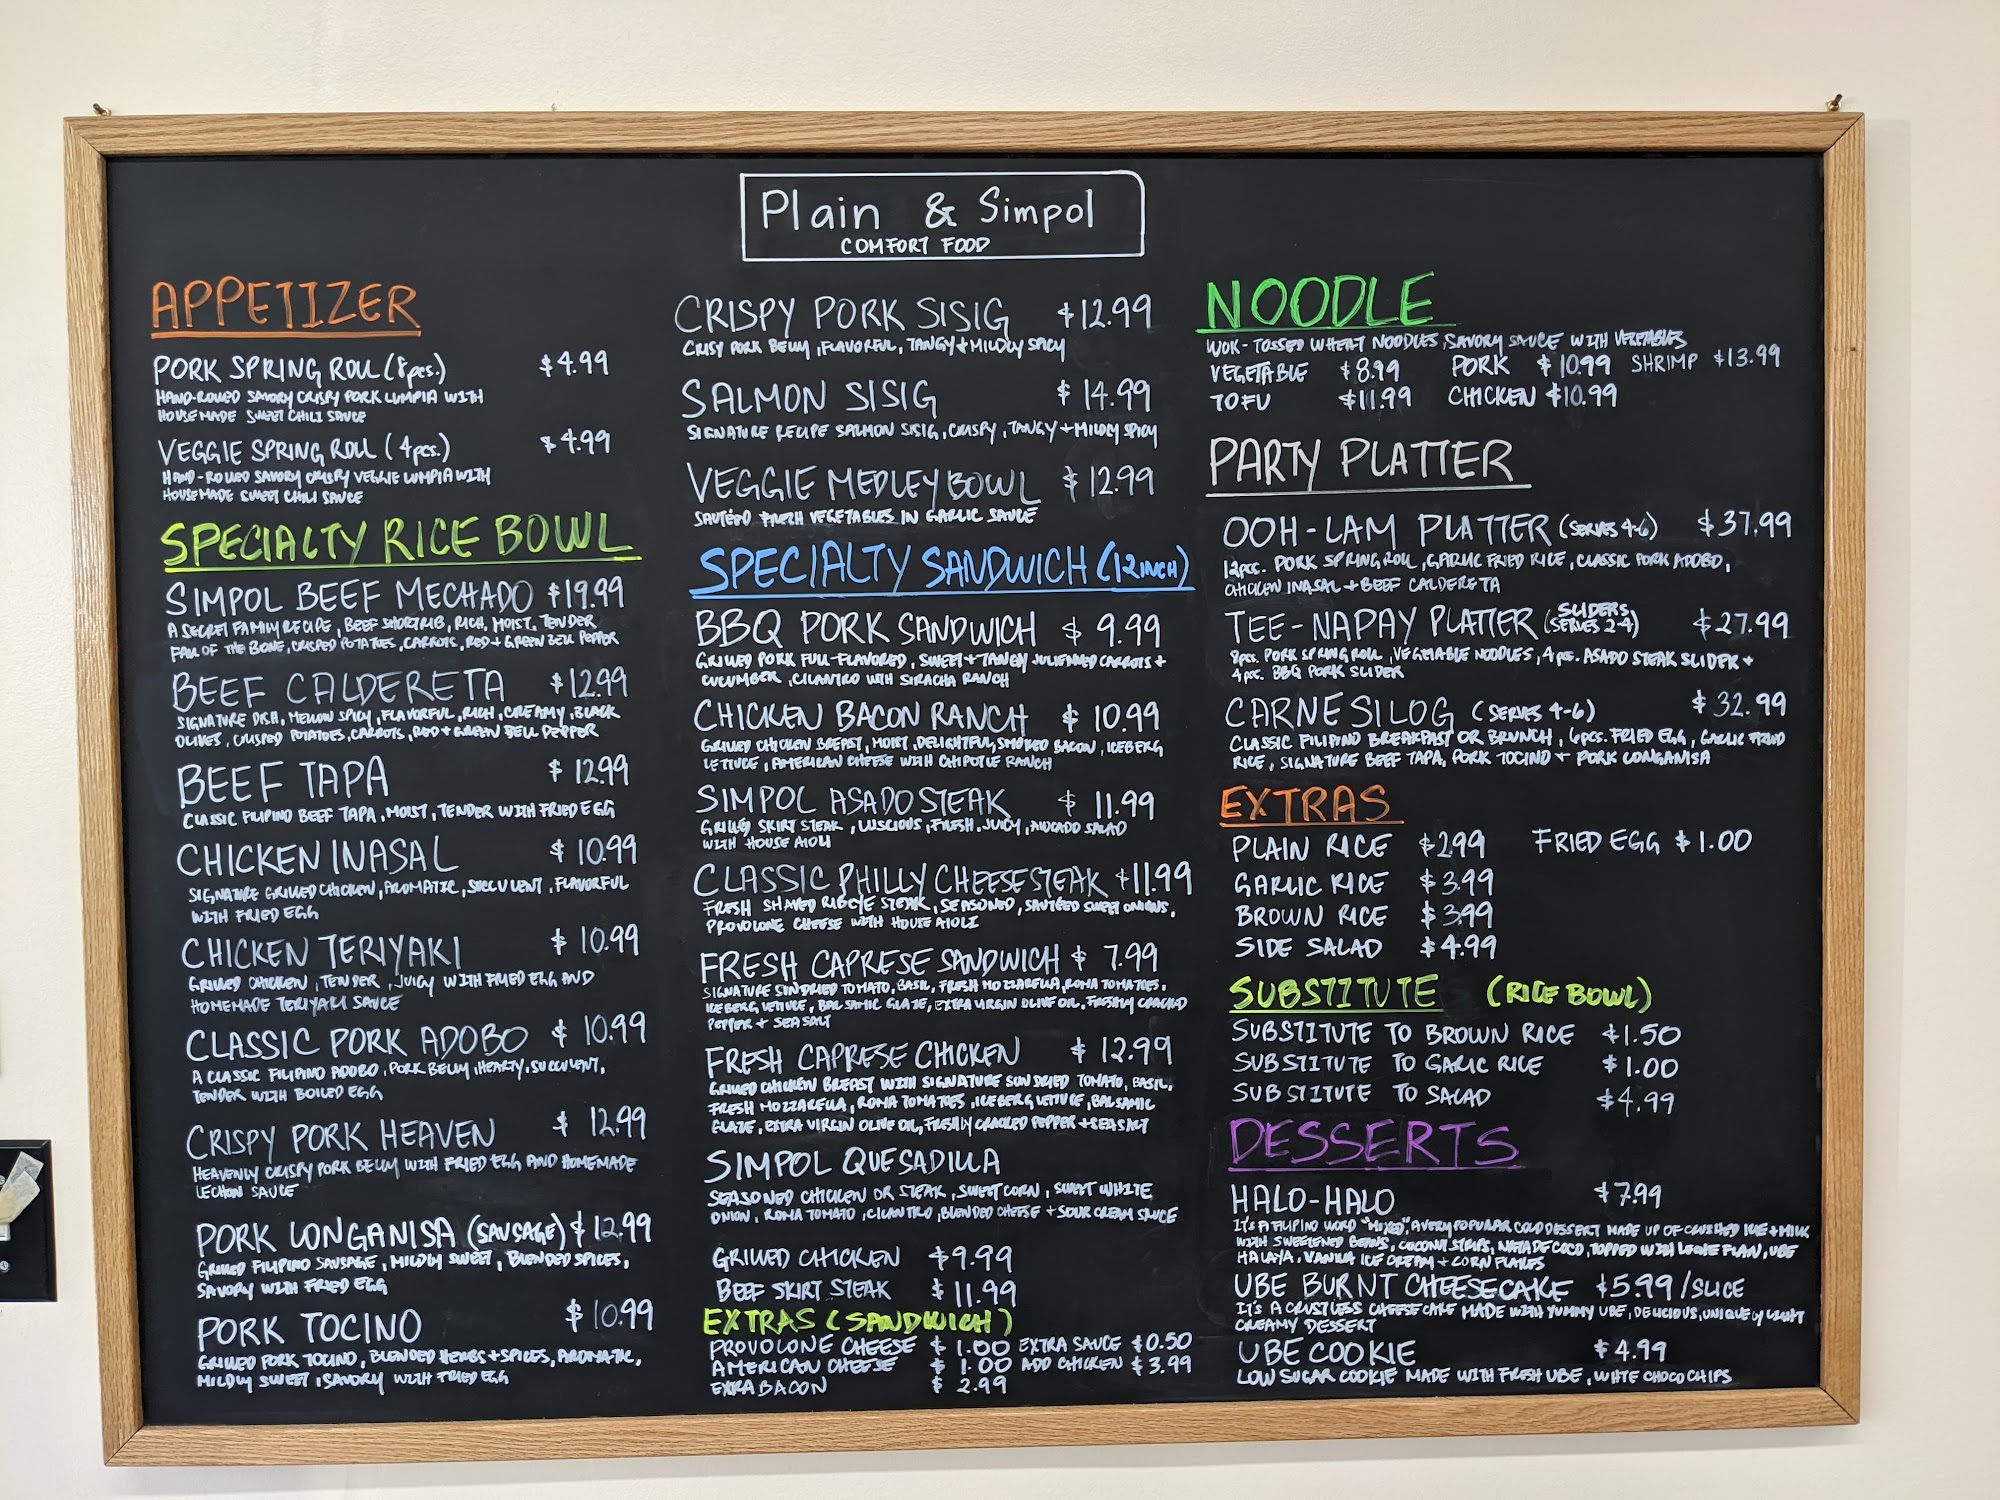 Plain & Simpol
COMFORT FOOD
APPETIZER
PORK SPRING ROLL (8pcs.) $4.99
HAND-ROLLED SAVORY CRISPY PORK LUMPIA WITH
HOUSEMADE SWEET CHILI SAUCE
VEGGIE SPRING ROLL (4pcs.) $4.99
HAND-ROLLED SAVORY CRISPY VEGGIE LUMPIA WITH
HOUSEMADE SWEET CHILI SAUCE
SPECIALTY RICE BOWL
SIMPOL BEEF MECHADO $19.99
A SECRET FAMILY RECIPE, BEEF SHORTRIB, RICH, MOIST, TENDER
FALL OF THE BONE, CRISPED POTATOES, CARROTS, RED + GREEN BELL PEPPER
BEEF CALDERETA $12.99
SIGNATURE DISH, MELLOW SPICY, FLAVORFUL, RICH, CREAMY, BLACK
OLIVES, CRISPED POTATOES, CARROTS, RED + GREEN BELL PEPPER
BEEF TAPA $12.99
CLASSIC FILIPINO BEEF TAPA, MOIST, TENDER WITH FRIED EGG
CHICKEN INASAL $10.99
SIGNATURE GRILLED CHICKEN, AROMATIC, SUCCULENT, FLAVORFUL
WITH FRIED EGG
CHICKEN TERIYAKI $10.99
GRILLED CHICKEN, TENDER, JUICY WITH FRIED EGG AND
HOMEMADE TERIYAKI SAUCE
CLASSIC PORK ADOBO $10.99
A CLASSIC FILIPINO ADOBO, PORK BELLY, HEARTY, SUCCULENT,
TENDER WITH BOILED EGG
CRISPY PORK HEAVEN $12.99
HEAVENLY CRISPY PORK BELLY WITH FRIED EGG AND HOMEMADE
LECHON SAUCE
PORK LONGANISA (SAUSAGE) $12.99
GRILLED FILIPINO SAUSAGE, MILDLY SWEET, BLENDED SPICES,
SAVORY WITH FRIED EGG
PORK TOCINO $10.99
GRILLED PORK TOCINO, BLENDED HERBS + SPICES, AROMATIC,
MILDLY SWEET, SAVORY WITH FRIED EGG
CRISPY PORK SISIG $12.99
CRISY PORK BELLY, FLAVORFUL, TANGY + MILDLY SPICY
SALMON SISIG $14.99
SIGNATURE RECIPE SALMON SISIG, CRISPY, TANGY + MILDLY SPICY
VEGGIE MEDLEY BOWL $12.99
SAUTÉED FRESH VEGETABLES IN GARLIC SAUCE
SPECIALTY SANDWICH (12 INCH)
BBQ PORK SANDWICH $9.99
GRILLED PORK FULL-FLAVORED, SWEET + TANGY JULIENNED CARROTS +
CUCUMBER, CILANTRO WITH SIRACHA RANCH
CHICKEN BACON RANCH $10.99
GRILLED CHICKEN BREAST, MOIST, DELIGHTFUL, SMOKED BACON, ICEBERG
LETTUCE, AMERICAN CHEESE WITH CHIPOTLE RANCH
SIMPOL ASADO STEAK $11.99
GRILLED SKIRT STEAK, LUSCIOUS, FRESH, JUICY, AVOCADO SALAD
WITH HOUSE AIOLI
CLASSIC PHILLY CHEESESTEAK $11.99
FRESH SHAVED RIBEYE STEAK, SEASONED, SAUTÉED SWEET ONIONS,
PROVOLONE CHEESE WITH HOUSE AIOLI
FRESH CAPRESE SANDWICH $7.99
SIGNATURE SUNDRIED TOMATO, BASIL, FRESH MOZZARELLA, ROMA TOMATOES,
ICEBERG LETTUCE, BALSAMIC GLAZE, EXTRA VIRGIN OLIVE OIL, FRESHLY CRACKED
PEPPER + SEA SALT
FRESH CAPRESE CHICKEN $12.99
GRILLED CHICKEN BREAST WITH SIGNATURE SUNDRIED TOMATO, BASIL,
FRESH MOZZARELLA, ROMA TOMATOES, ICEBERG LETTUCE, BALSAMIC
GLAZE, EXTRA VIRGIN OLIVE OIL, FRESHLY CRACKED PEPPER + SEA SALT
SIMPOL QUESADILLA
SEASONED CHICKEN OR STEAK, SWEET CORN, SWEET WHITE
ONION, ROMA TOMATO, CILANTRO, BLENDED CHEESE + SOUR CREAM SAUCE
GRILLED CHICKEN $9.99
BEEF SKIRT STEAK $11.99
EXTRAS (SANDWICH)
PROVOLONE CHEESE $1.00 EXTRA SAUCE $0.50
AMERICAN CHEESE $1.00 ADD CHICKEN $3.99
EXTRA BACON $2.99
NOODLE
WOK-TOSSED WHEAT NOODLES, SAVORY SAUCE WITH VEGETABLES
VEGETABLE $8.99 PORK $10.99 SHRIMP $13.99
TOFU $11.99 CHICKEN $10.99
PARTY PLATTER
OOH-LAM PLATTER (SERVES 4-6) $37.99
12pcs. PORK SPRING ROLL, GARLIC FRIED RICE, CLASSIC PORK ADOBO,
CHICKEN INASAL + BEEF CALDERETA
TEE-NAPAY PLATTER (SLIDERS SERVES 2-4) $27.99
8pcs. PORK SPRING ROLL, VEGETABLE NOODLES, 4pcs. ASADO STEAK SLIDER +
4pc. BBQ PORK SLIDER
CARNESILOG (SERVES 4-6) $32.99
CLASSIC FILIPINO BREAKFAST OR BRUNCH, 6pcs. FRIED EGG, GARLIC FRIED
RICE, SIGNATURE BEEF TAPA, PORK TOCINO + PORK LONGANISA
EXTRAS
PLAIN RICE $2.99 FRIED EGG $1.00
GARLIC RICE $3.99
BROWN RICE $3.99
SIDE SALAD $4.99
SUBSTITUTE (RICE BOWL)
SUBSTITUTE TO BROWN RICE $1.50
SUBSTITUTE TO GARLIC RICE $1.00
SUBSTITUTE TO SALAD $4.99
DESSERTS
HALO-HALO $7.99
IT'S A FILIPINO WORD "MIXED", A VERY POPULAR COLD DESSERT MADE UP OF CRUSHED ICE + MILK
WITH SWEETENED BEANS, COCONUT STRIPS, NATA DE COCO, TOPPED WITH LECHE FLAN, UBE
HALAYA, VANILLA ICE CREAM + CORN FLAKES
UBE BURNT CHEESECAKE $5.99/SLICE
IT'S A CRUSTLESS CHEESECAKE MADE WITH YUMMY UBE, DELICIOUS, UNIQUELY LIGHT
CREAMY DESSERT
UBE COOKIE $4.99
LOW SUGAR COOKIE MADE WITH FRESH UBE, WHITE CHOCO CHIPS